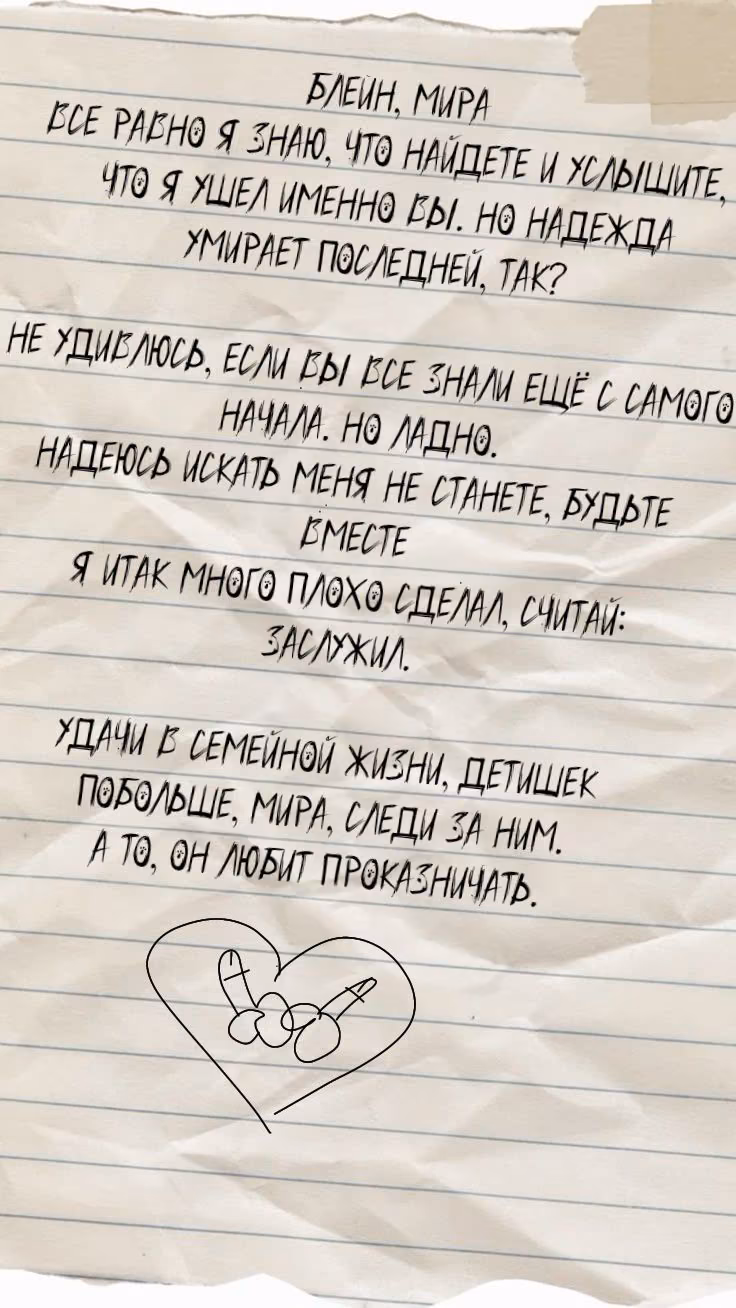 БЛЕЙН, МИРА
ВСЕ РАВНО Я ЗНАЮ, ЧТО НАЙДЕТЕ И УСЛЫШИТЕ,
ЧТО Я УШЕЛ ИМЕННО ВЫ. НО НАДЕЖДА
УМИРАЕТ ПОСЛЕДНЕЙ, ТАК?
НЕ УДИВЛЮСЬ, ЕСЛИ ВЫ ВСЕ ЗНАЛИ ЕЩЁ С САМОГО
НАЧАЛА. НО ЛАДНО.
НАДЕЮСЬ ИСКАТЬ МЕНЯ НЕ СТАНЕТЕ, БУДЬТЕ
ВМЕСТЕ
Я ИТАК МНОГО ПЛОХО СДЕЛАЛ, СЧИТАЙ:
ЗАСЛУЖИЛ.
УДАЧИ В СЕМЕЙНОЙ ЖИЗНИ, ДЕТИШЕК
ПОБОЛЬШЕ, МИРА, СЛЕДИ ЗА НИМ.
А ТО, ОН ЛЮБИТ ПРОКАЗНИЧАТЬ.